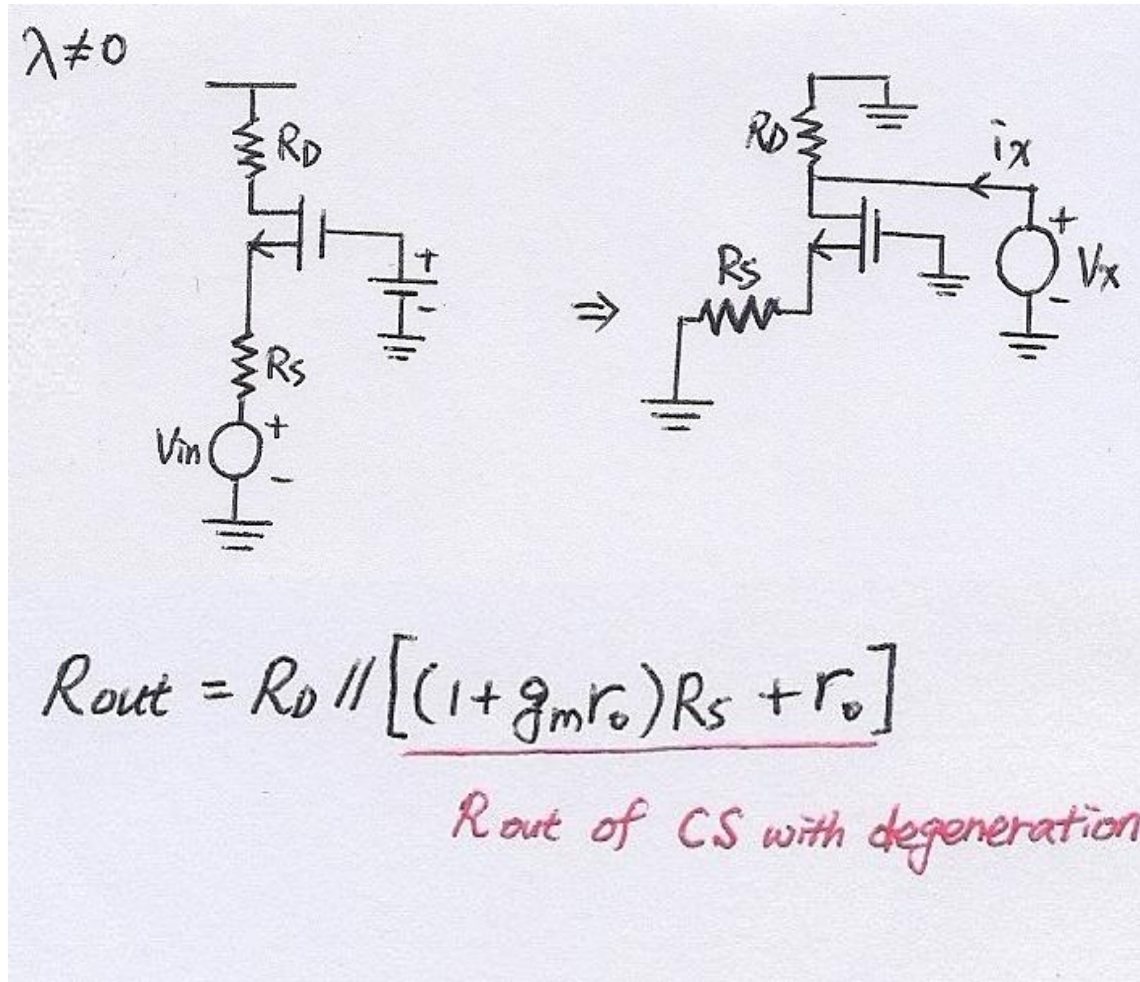 λ≠0
RD
+
-
RS
Vin
+
-
⇒
RD
ix
+
Vx
-
RS
Rout = RD // [(1+gmro)RS + ro]
Rout of CS with degeneration